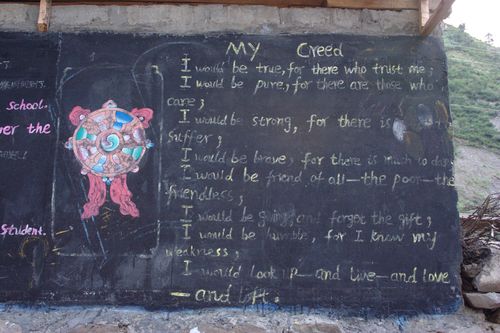 MY Creed
I would be true, for there who trust me;
I would be pure, for there are those who
care;
I would be strong, for there is
suffer;
I would be brave, for there is much to dare;
I would be friend of all—the poor—the
friendless;
I would be giving, and forgot the gift;
I would be humble, for I know my
weakness;
I would look up—and live—and love
—and lift.
school.
over the
student.